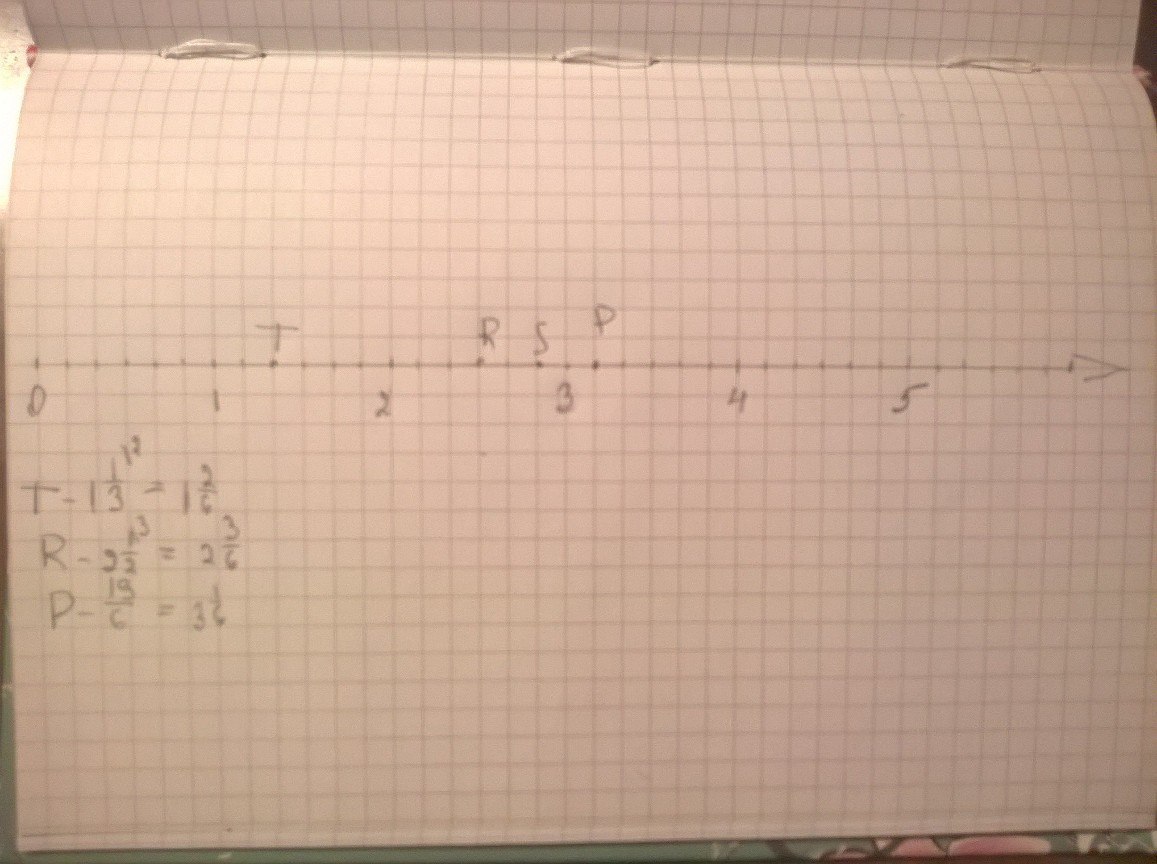 T R S P
0 1 2 3 4 5
T - 1 1/3 ^2 = 1 2/6
R - 2 1/2 ^3 = 2 3/6
P - 19/6 = 3 1/6